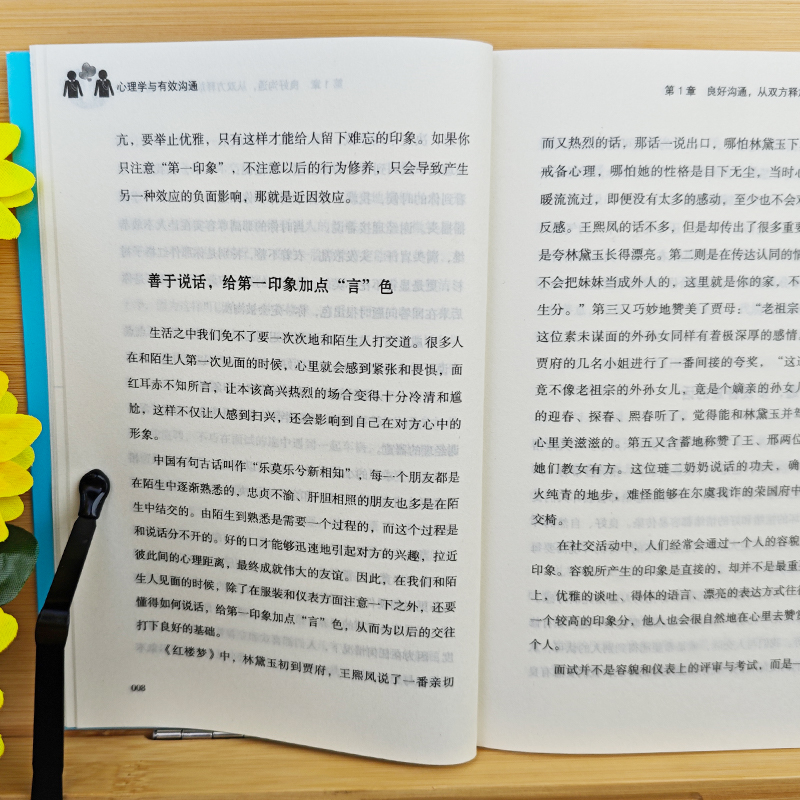 心理学与有效沟通
亢，要举止优雅，只有这样才能给人留下难忘的印象。如果你
只注意“第一印象”，不注意以后的行为修养，只会导致产生
另一种效应的负面影响，那就是近因效应。
善于说话，给第一印象加点“言”色
生活之中我们免不了要一次次地和陌生人打交道。很多人
在和陌生人第一次见面的时候，心里就会感到紧张和畏惧，面
红耳赤不知所言，让本该高兴热烈的场合变得十分冷清和尴
尬，这样不仅让人感到扫兴，还会影响到自己在对方心中的
形象。
中国有句古话叫作“乐莫乐兮新相知”，每一个朋友都是
在陌生中逐渐熟悉的，忠贞不渝、肝胆相照的朋友也多是在陌
生中结交的。由陌生到熟悉是需要一个过程的，而这个过程是
和说话分不开的。好的口才能够迅速地引起对方的兴趣，拉近
彼此间的心理距离，最终成就伟大的友谊。因此，在我们和陌
生人见面的时候，除了在服装和仪表方面注意一下之外，还要
懂得如何说话，给第一印象加点“言”色，从而为以后的交往
打下良好的基础。
《红楼梦》中，林黛玉初到贾府，王熙凤说了一番亲切
008
第1章 良好沟通，从双方释
而又热烈的话，那话一说出口，哪怕林黛玉下
戒备心理，哪怕她的性格是目下无尘，当时心
暖流流过，即便没有太多的感动，至少也不会对
反感。王熙凤的话不多，但是却传出了很多重要
是夸林黛玉长得漂亮。第二则是在传达认同的情
不会把妹妹当成外人的，这里就是你的家，不
生分。”第三又巧妙地赞美了贾母：“老祖宗
这位素未谋面的外孙女同样有着极深厚的感情
贾府的几名小姐进行了一番间接的夸奖，“这
竟不像老祖宗的外孙女儿，竟是个嫡亲的孙女儿
的迎春、探春、熙春听了，觉得能和林黛玉并
心里美滋滋的。第五又含蓄地称赞了王、邢两位
她们教女有方。这位琏二奶奶说话的功夫，确
火纯青的地步，难怪能够在尔虞我诈的荣国府中
交椅。
在社交活动中，人们经常会通过一个人的容貌
印象。容貌所产生的印象是直接的，却并不是最重
上，优雅的谈吐、得体的语言、漂亮的表达方式往
一个较高的印象分，他人也会很自然地在心里去赞
个人。
面试并不是容貌和仪表上的评审与考试，而是一